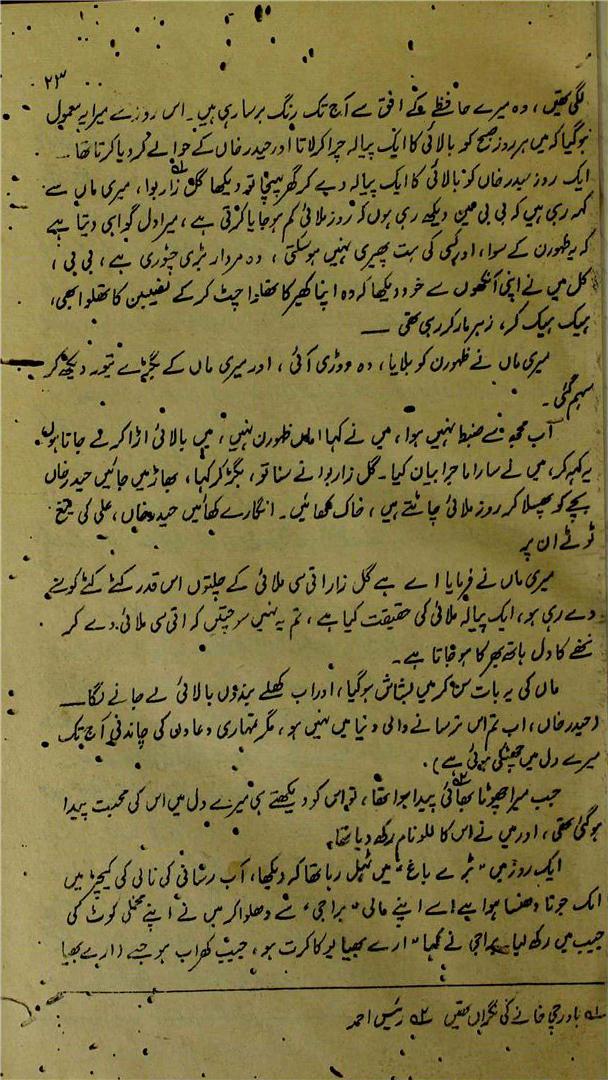 ۲۳
لگی تھیں، وہ میرے حافظے کے افق سے آج تک رنگ برسا رہی ہیں۔ اس روز سے میرا یہ معمول
ہو گیا کہ میں ہر روز صبح کو بالائی کا ایک پیالہ چرا کر لاتا اور حیدر خاں کے حوالے کر دیا کرتا تھا۔
ایک روز حیدر خاں کو بالائی کا ایک پیالہ دے کر گھر پہنچا تو دیکھا گل زار بوا، میری ماں سے
کہہ رہی ہیں کہ بی بی میں دیکھ رہی ہوں کہ روز ملائی کم ہو جایا کرتی ہے، میرا دل گواہی دیتا ہے
کہ یہ ظہورن کے سوا، اور کسی کی ہت پھیری نہیں ہو سکتی، وہ مردار بڑی چٹوری ہے، بی بی،
کل میں نے اپنی آنکھوں سے خود دیکھا کہ وہ اپنا کھیر کا پیالہ چٹ کر کے نصیبن کا بھی،
ہپک ہپک کر، زہر مار کر رہی تھی —
میری ماں نے ظہورن کو بلایا، وہ دوڑی آئی، اور میری ماں کے بگڑے تیور دیکھ کر
سہم گئی۔
اب مجھ سے ضبط نہیں ہوا، میں نے کہا اماں ظہورن نہیں، میں بالائی اڑا کر لے جاتا ہوں۔
یہ کہہ کر، میں نے سارا ماجرا بیان کیا۔ گل زار بوا نے سنا تو، بگڑ کر کہا، بھاڑ میں جائیں حیدر خاں
بچے کو پھسلا کر روز ملائی چاٹتے ہیں، خاک کھائیں۔ انگارے کھائیں حیدر خاں، علی کی تیغ
ٹوٹے ان پر
میری ماں نے فرمایا اے ہے گل زار اتی سی ملائی کے چلتوں اس قدر کٹے کٹے کوسنے
دے رہی ہو، ایک پیالہ ملائی کی حقیقت کیا ہے، تم یہ نہیں سوچتیں کہ اتی سی ملائی دے کر
ننھے کا دل ہاتھ بھر کا ہو جاتا ہے۔
ماں کی یہ بات سن کر میں بشاش ہو گیا، اور اب کھلے بندوں بالائی لے جانے لگا —
(حیدر خاں، اب تم اس ترسانے والی دنیا میں نہیں ہو، مگر تمہاری دعاوں کی چاندنی آج تک
میرے دل میں چھٹکی ہوئی ہے)۔
جب میرا چھوٹا بھائی ۲ پیدا ہوا تھا، تو اس کو دیکھتے ہی میرے دل میں اس کی محبت پیدا
ہو گئی تھی، اور میں نے اس کا للو نام رکھ دیا تھا۔
ایک روز میں "بڑے باغ" میں ٹہل رہا تھا کہ دیکھا، آب رسانی کی نالی کی کیچڑ میں
ایک جوتا دھنسا ہوا ہے اسے اپنے مالی "براجی" سے دھلوا کر میں نے اپنے مخملی کوٹ کی
جیب میں رکھ لیا۔ براجی نے کہا "ارے بھیا یو کا کرت ہو، جیب کھراب ہو جیہے (ارے بھیا
۱ باورچی خانے کی نگراں تھیں ۲ رئیس احمد